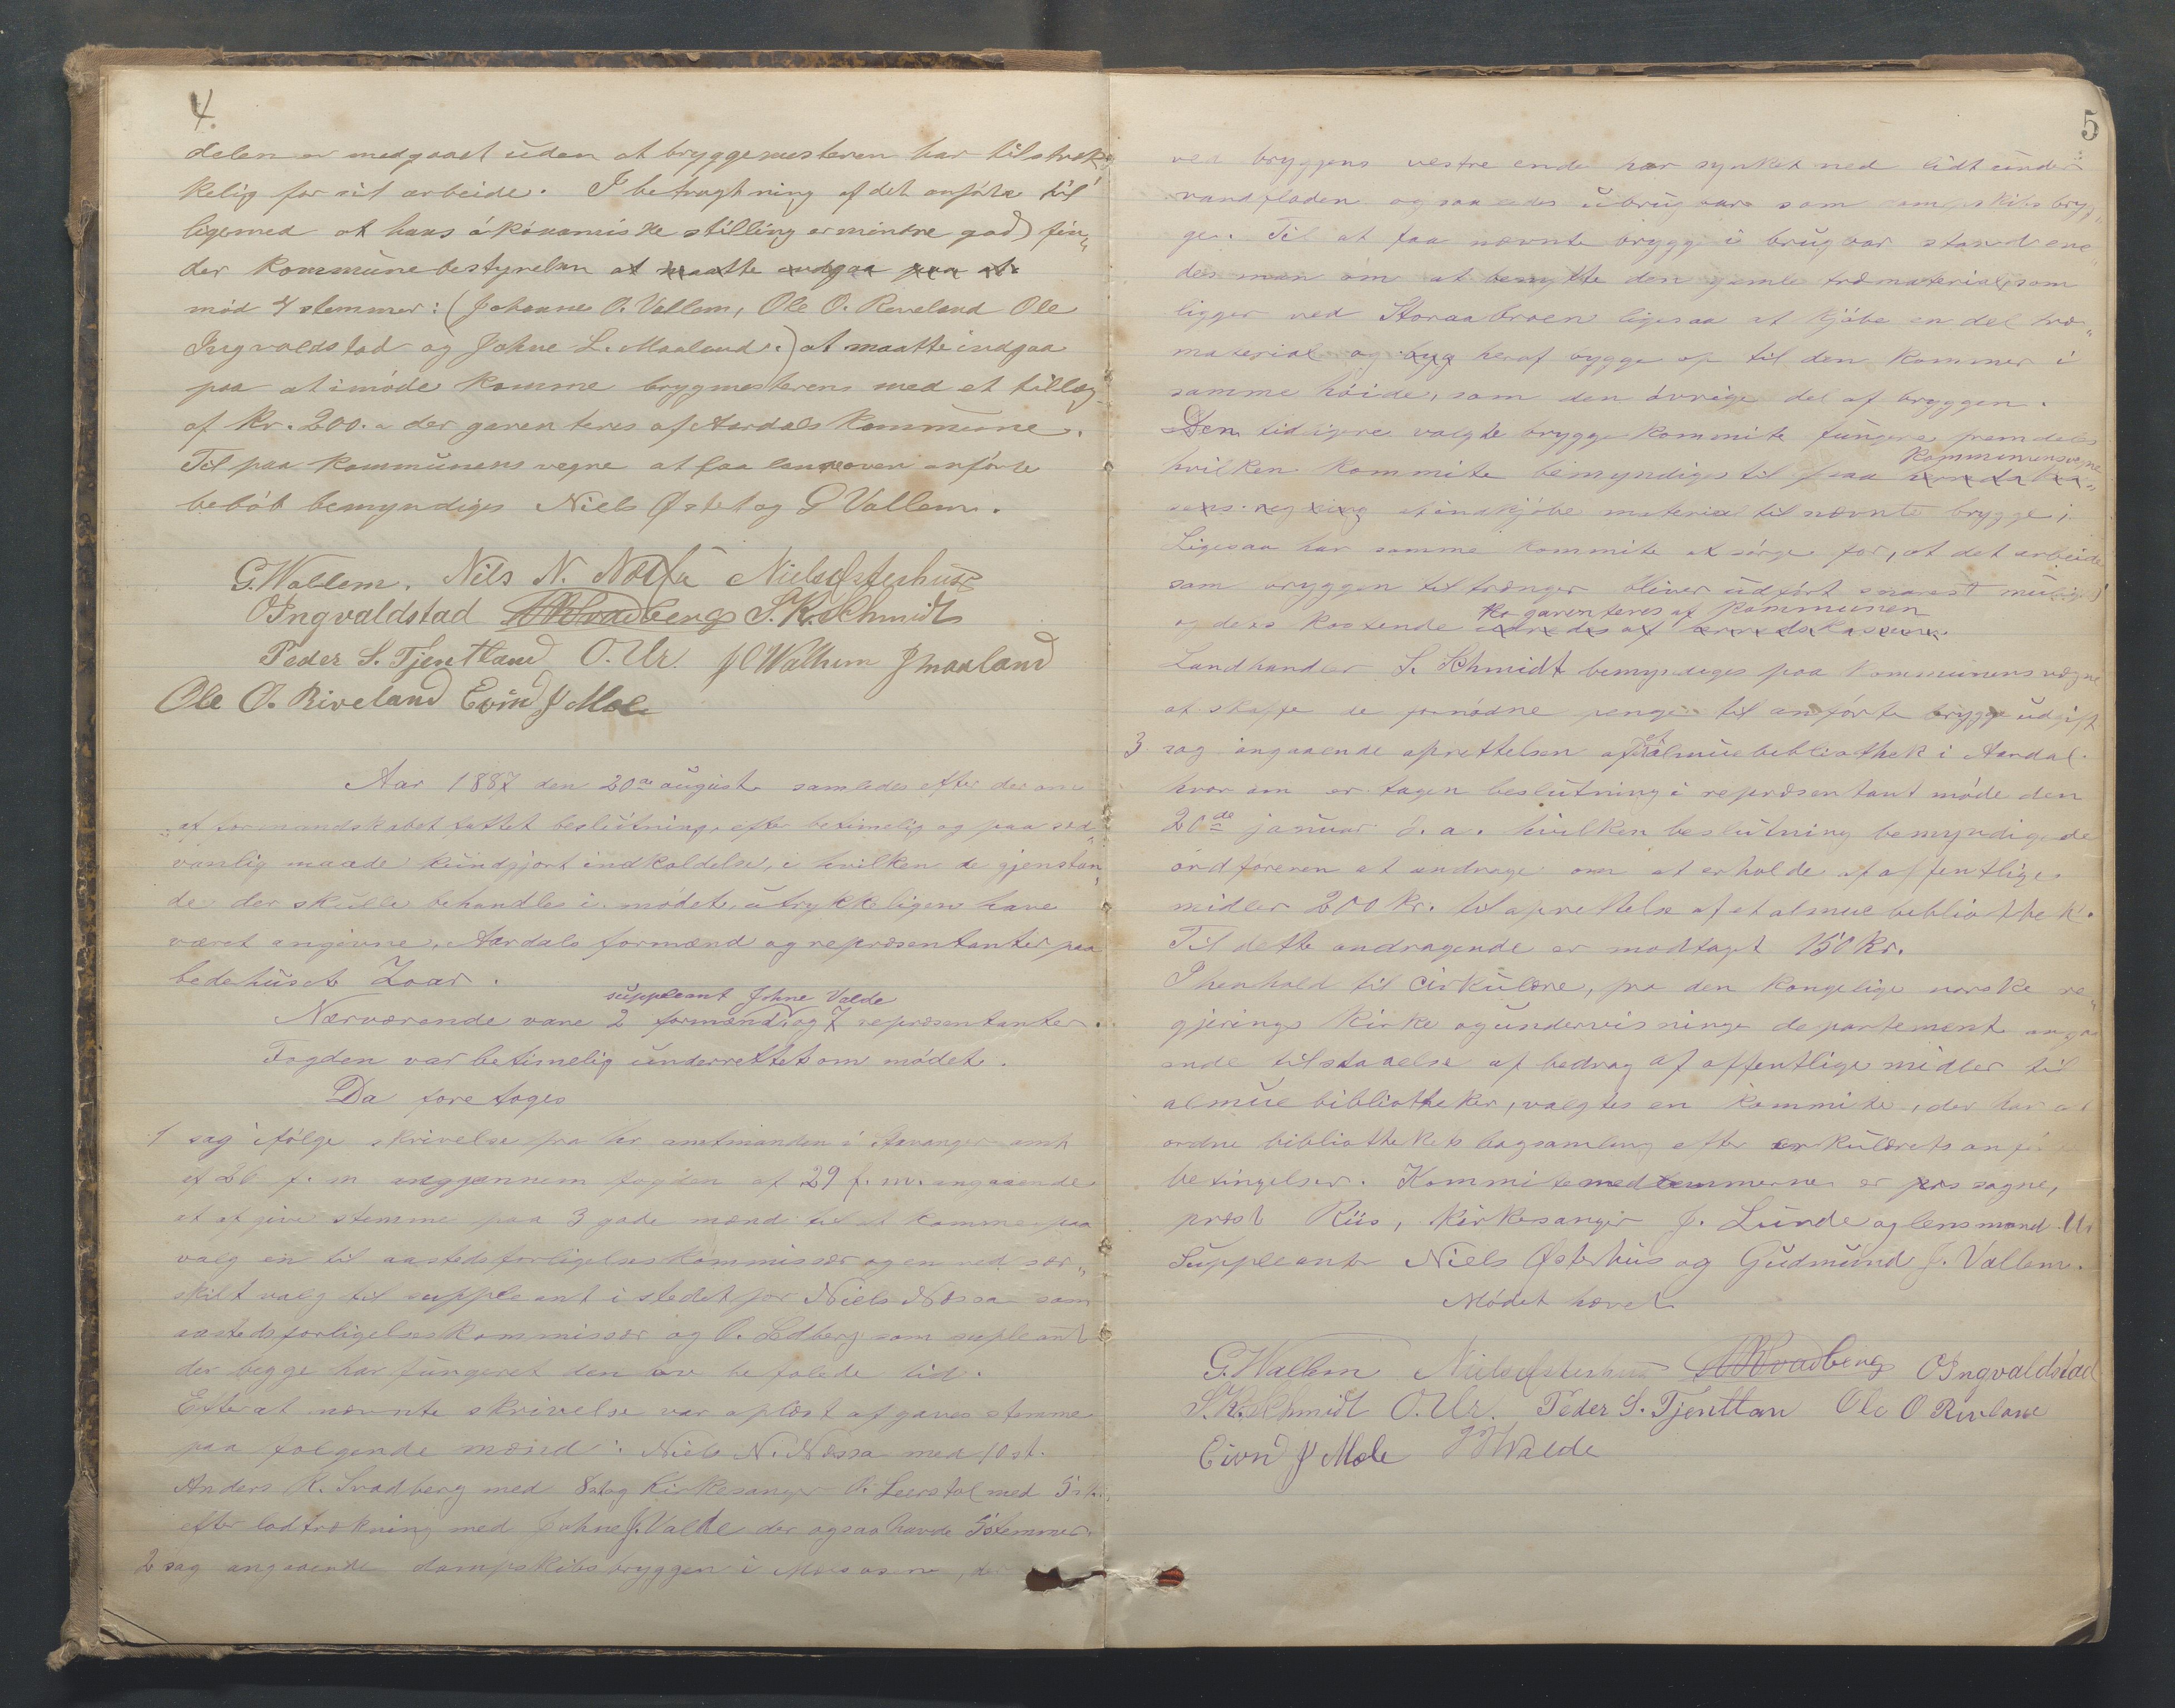 4.
delen er medgaaet uden at bryggemesteren har tilstræk„
kelig for sit arbeide. I betragtning af det anförte til
ligemed at hans ökonomiske stilling er mindre god) fin„
der kommunebestyrelsen at maatte indgaa paa at
mod 4 stemmer: (Johannes O. Vallem, Ole O. Riveland Ole
Ingvaldstad og Johne L. Maaland.) at maatte indgaa
paa at imöde komme brygmesterens med et tillæg
af Kr. 200.„ der garenteres af Aardals Kommune.
Til paa kommunens vegne at faa laane oven anförte
beböb bemyndiges Niels Østet og G Vallem.
G. Wallem. Nils N. Næssa Niels Østerhus
O Ingvaldstad A R Svadberg S. K. Schmidt
Peder S. Tjentland O. Ur. J O Walhem J Maaland
Ole O. Riveland Eivind J Mæle
Aar 1887 den 20de august samledes efter der om
af formandskabet fattet beslutning, efter betimelig og paa sæd
vanlig maade kundgjort indkaldelse, i hvilken de gjenstan„
de der skulle behandles i mödet, utrykkeligen have
været angivne, Aardals formænd og repræsentanter paa
bedehuset Zoar.
suppleant Johne Valde
Nærværende vare 2 formænd, og 7 repræsentanter.
Fogden var betimelig underrettet om mödet.
Da foretoges
1 sag ifölge skrivelse fra hr amtmanden i Stavanger amt
af 26 f. m. iggjennem fogden af 29 f. m. angaaende
at afgive stemme paa 3 gode mænd til at komme paa
valg en til aastedsforligelseskommissær og en ved sær„
skilt valg til suppleant i stedet for Niels Næssa som
aastedsforligelseskommissær og O. Ledberg som supleant
der begge har fungeret den lov befalede tid.
Efterat nævnte skrivelse var oplæst afgaves stemme
paa følgende mænd: Niels N. Næssa med 10 st.
Anders R. Svadberg med 8 st og Kirkesanger O. Leerstol med 5 st.
efter lodtrækning med Johne J. Valde der ogsaa havde 5 stemmer.
2 sag angaaende dampskibsbryggen i
5
ved bryggens vestre ende har synket ned lidt under
vandfladen og saaledes ubrugbare som dampskibsbryg„
ge. Til at faa nævnte brygge i brugbar stand ene„
des man om at benytte den gamle træmaterial som
ligger ved Storaabroen ligesaa at kjöbe en del træ„
material og byg heraf bygge op til den kommer i
samme höide, som den övrige del af bryggen.
Den tidligere valgte brygge kommite fungere fremdeles
kommunensvegne
hvilken kommite bemyndiges til paa
at indkjöbe material til nævnte brygge.
Ligesaa har samme kommite at sörge for, at det arbeide
som bryggen tiltrænger bliver udfört snarest muligt
garenteres af kommunen
og dens kostende udredes af herredskassen.
Landhandler S. Schmidt bemyndiges paa kommunens vegne
at skaffe de fornödne penge til anförte brygge udgift
3 sag angaaende oprettelsen af et almuebibliothek i Aardal.
hvor om er tagen beslutning i repræsentant möde den
20de januar d. a. hvilken beslutning bemyndigede
ordföreren at andrage om at erholde af offentlige
midler 200 Kr. til oprettelse af et almue bibliothek.
Til dette andragende er modtaget 150 Kr.
I henhold til cirkulære, fra den kongelige norske re„
gjerings kirke og undervisnings departement angaa
ende tilstaaelse af bedrag af offentlige midler til
almue bibliotheker, valgtes en kommite, der har at
ordne bibliothekets bogsamling efter cirkulærets anförte
betingelser. Kommitemedlemmerne er sogne,
præst Riis, kirkesanger J. Lunde og lensmand Ur
Suppleanter Niels Østerhus og Gudmund J. Vallem.
Mödet hævet
G. Wallem Niels Østerhus A R Svadberg O Ingvaldstad
S. K. Schmidt O. Ur. Peder S. Tjentlan Ole O Rivland
Eivn J Mæle J J Walde